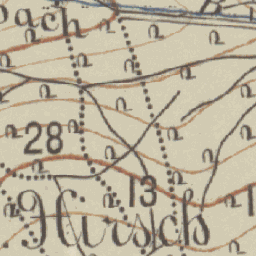 bach
28
13
Hirsch
1